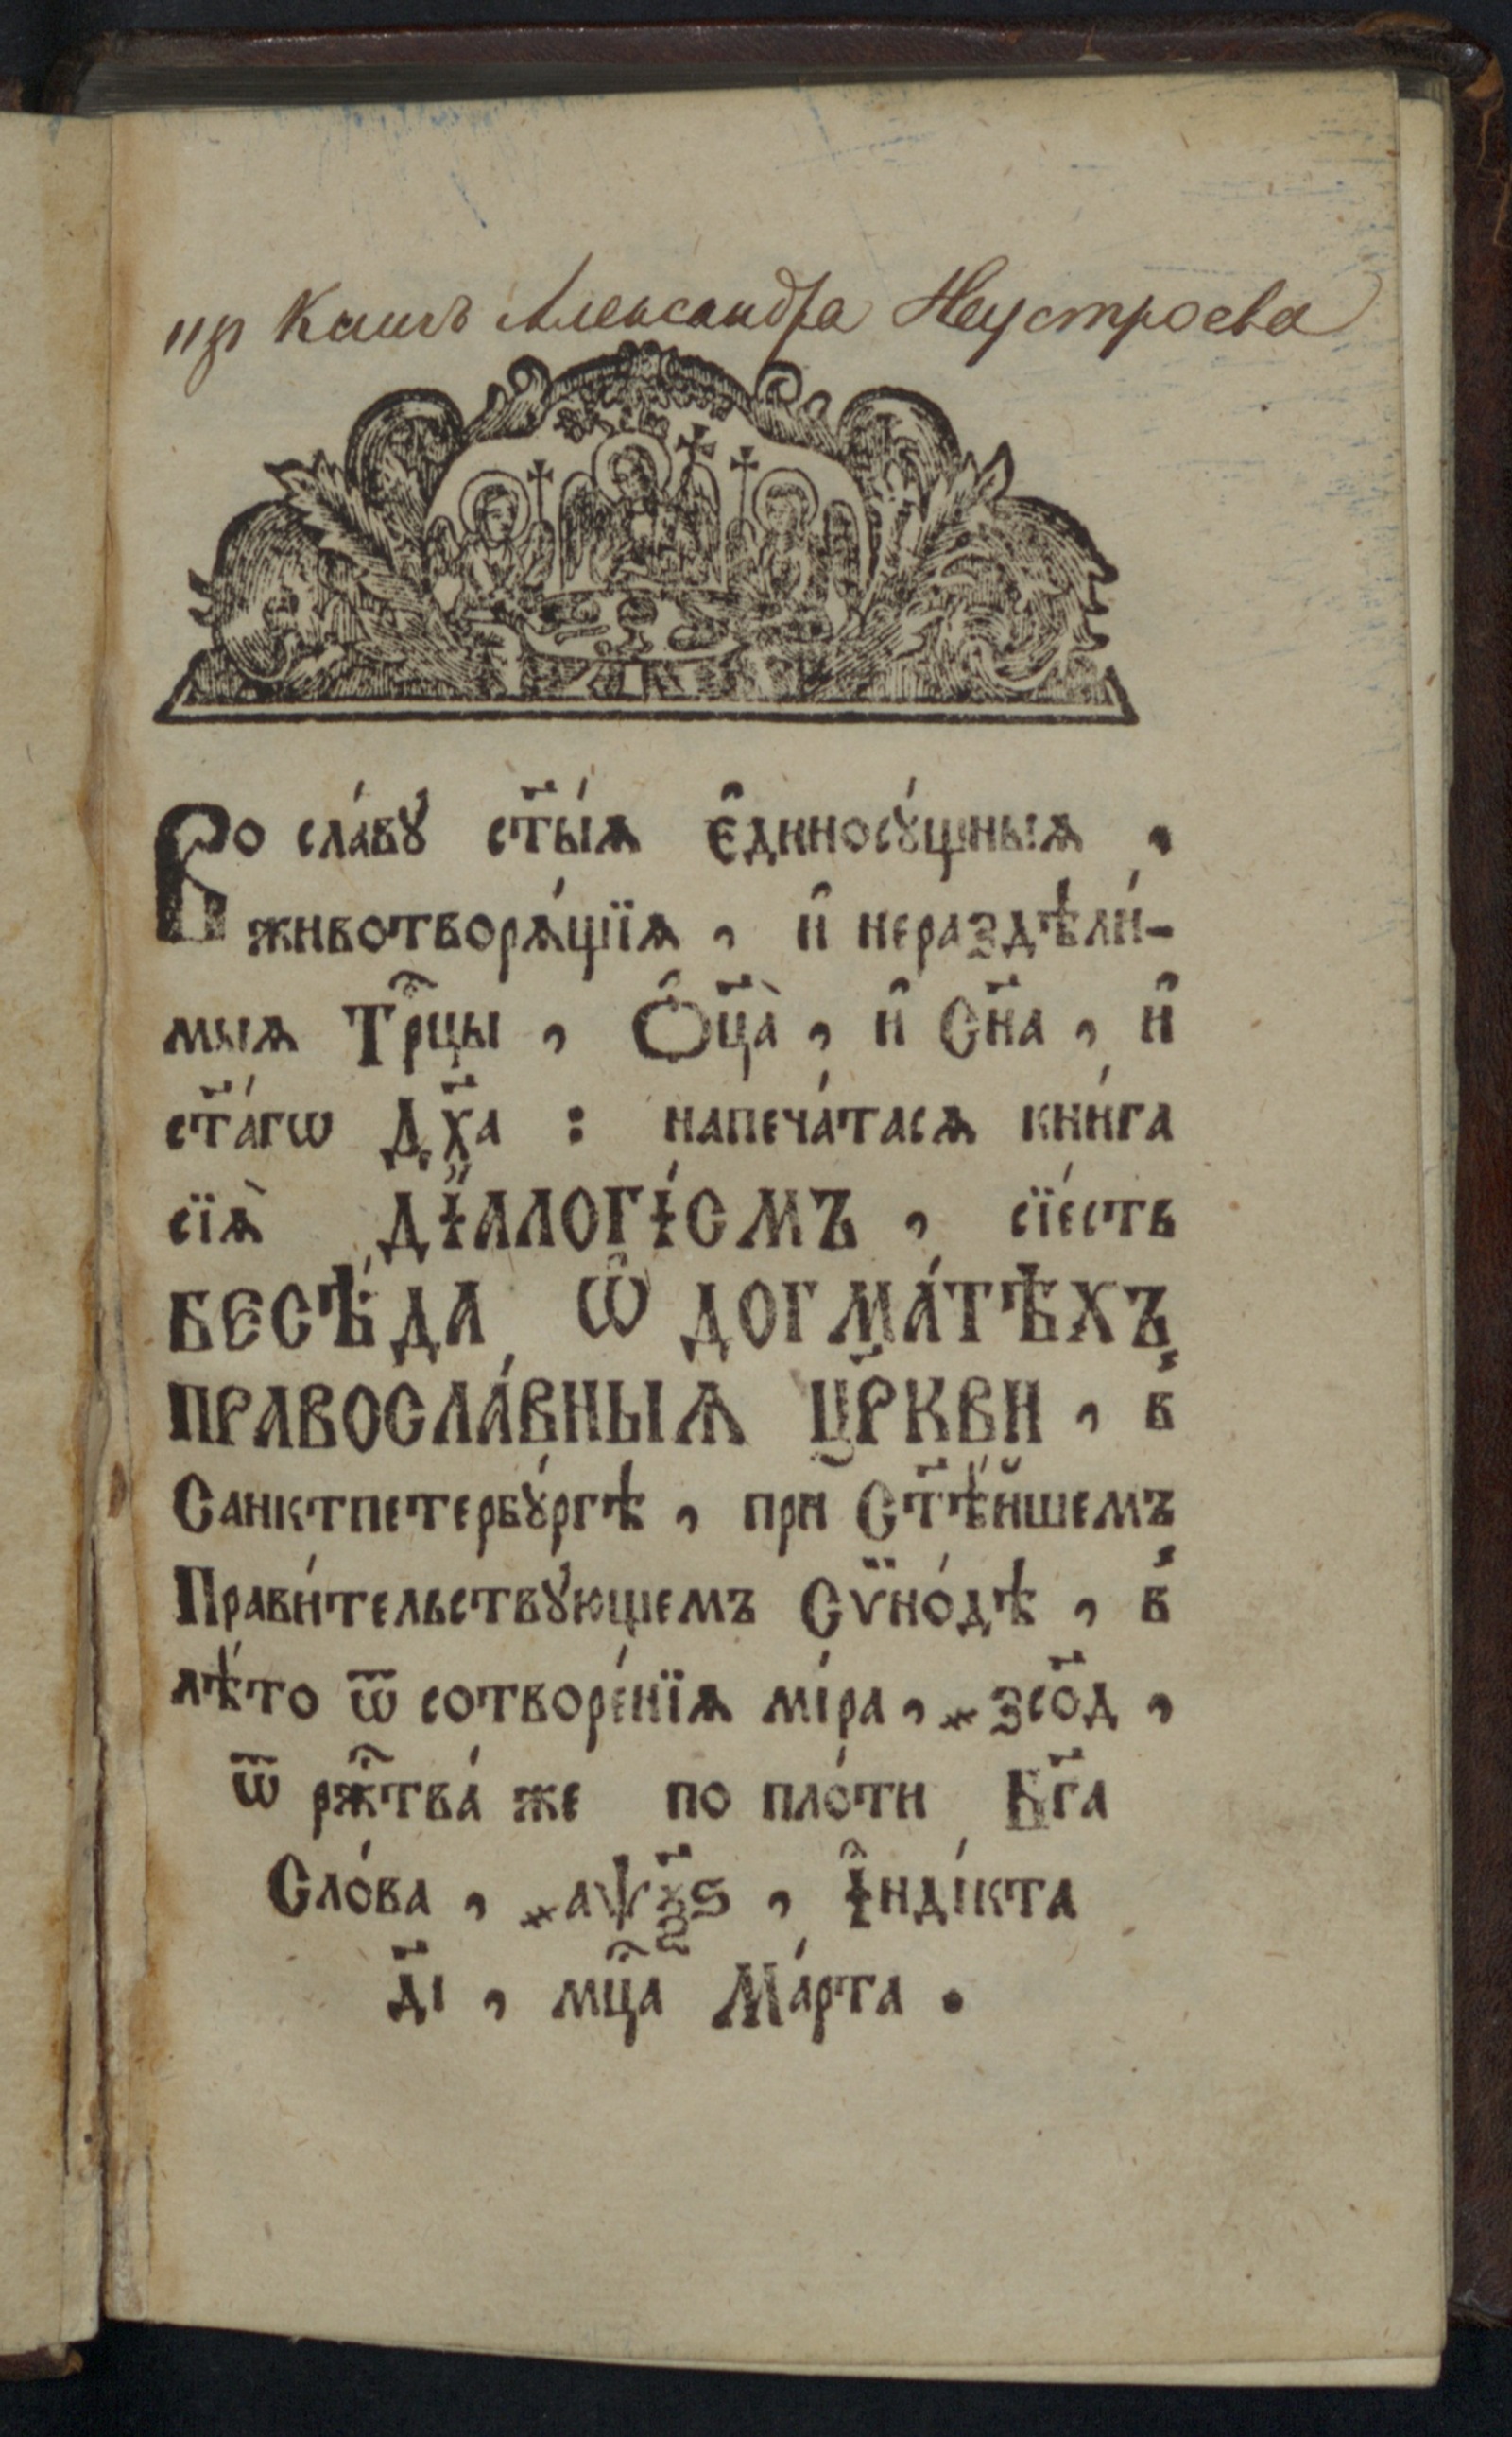 Александра Неустроева
Во сла́вꙋ ст҃ы́ѧ є҆диносꙋ́щныѧ ,
животворѧ́щїѧ , и҆ нераздѣли́-
мыѧ Трⷪ҇цы , Ѻ҆ц҃а̀ , и҆ Сн҃а , и҆
ст҃а́гѡ Дх҃а : напеча́тасѧ кни́га
сїѧ̀ ДЇАЛОГІ́СМЪ , сїе́сть
БЕСѢ́ДА Ѡ҆ ДОГМА́ТѢХЪ
ПРАВОСЛА́ВНЫѦ ЦР҃КВИ , в̾
Санктпетербꙋ́ргѣ , при Ст҃ѣ́йшемъ
Прави́тельствꙋющемъ Сѷно́дѣ , в̾
лѣ́то ѿ сотворе́нїѧ мі́ра , ҂зсо҃д ,
ѿ рж҇тва́ же по пло́ти Бг҃а
Сло́ва , ҂аѱѯ҃ѕ , І҆нді́кта
д҃і , мц҇а Ма́рта .